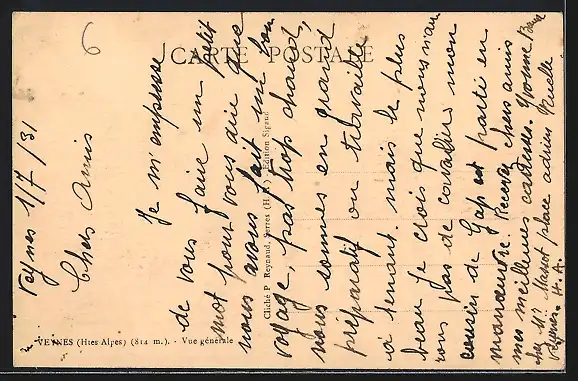 6
CARTE POSTALE
Veynes 1/7/31
Chers Amis
Je m'empresse
de vous faire un petit
mot pour vous dire que
nous avons fait un bon
voyage, pas trop chaud,
nous sommes en grand
préparatif on travaille
a tenant. mais le plus
beau je crois que nous n'au
rons pas de cavaliers mon
cousin de Gap est parti en
manœuvre. Recevez chers amis
mes meilleures amitiées. Yvonne
chez Mr Massot place adrien Ruelle
Veynes. H. A.
Cliché P Reynaud, Serres (H.-A.) - Edition Sigaud
VEYNES (Htes Alpes) (814 m.). - Vue générale